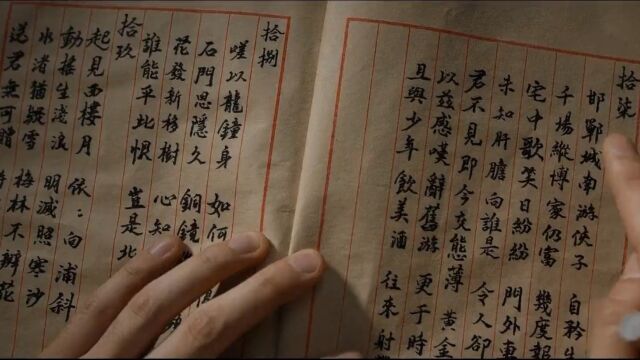 拾柒
邯鄲城南游俠子 自矜
千場縱博家仍富 幾度報
宅中歌笑日紛紛 門外
未知肝膽向誰是 令人卻
君不見即今交態薄 黃金
以茲感嘆辭舊游 更于時
且與少年飲美酒 往來射
拾捌
嗟以龍鐘身 如何
石門思隱久 銅鏡
花發新移樹 心知
誰能平此恨 豈是北
拾玖
起見西樓月 依:向浦斜
動搖生淺浪 明滅照寒沙
水渚猶疑雪 梅林不辨花
送君無可贈